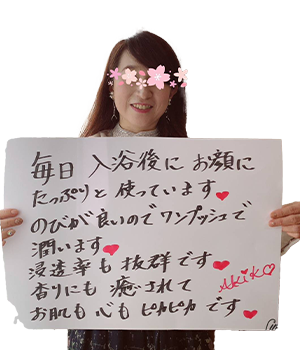 毎日 入浴後に お顔に
たっぷりと 使っています♥
のびが良いのでワンプッシュで
潤います♥
浸透率も 抜群です♥
香りにも 癒されて
AKiKO
お肌も 心も ピカピカです♥